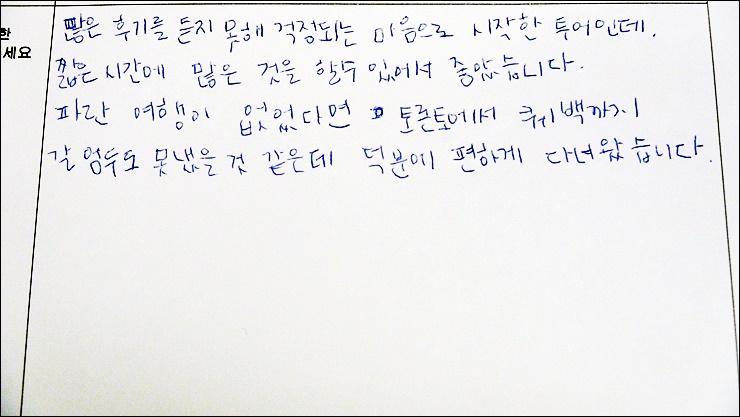 한
세요
많은 후기를 듣지 못해 걱정되는 마음으로 시작한 투어인데,
짧은 시간에 많은 것을 할수 있어서 좋았습니다.
파란 여행이 없었다면 토론토에서 퀘백까지
갈 엄두도 못냈을 것 같은데 덕분에 편하게 다녀왔습니다.